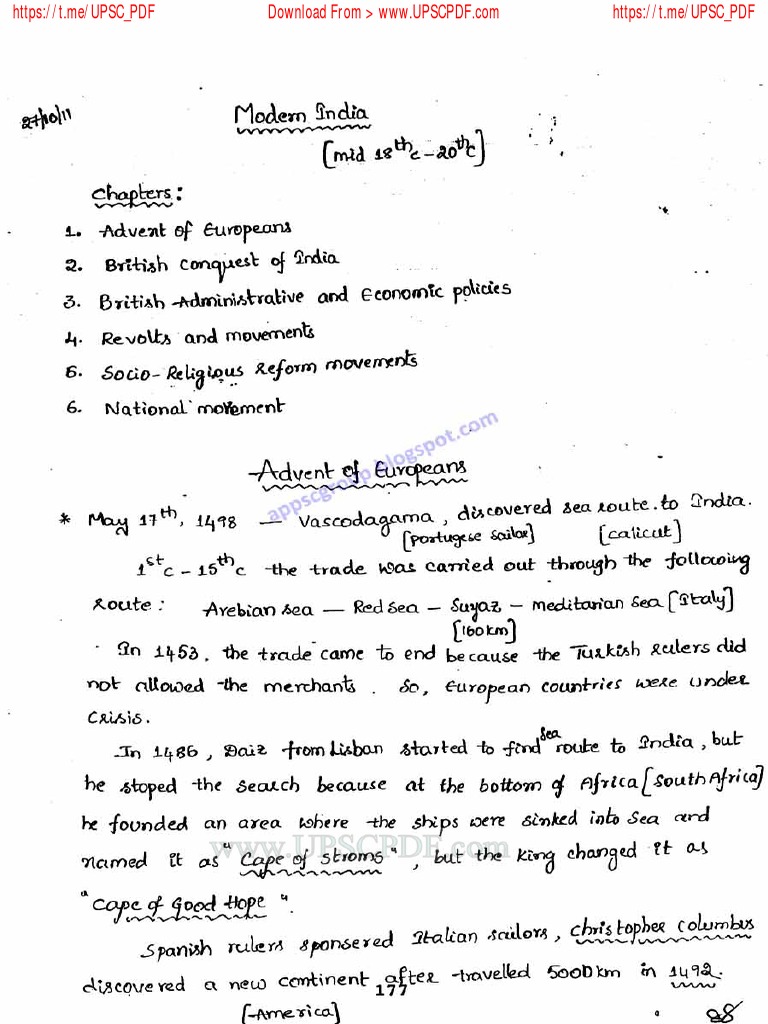 https://t.me/UPSC_PDF Download From > www.UPSCPDF.com https://t.me/UPSC_PDF
27/10/11
Modern India
[mid 18th c - 20th c]
Chapters:
1. Advent of Europeans
2. British conquest of India
3. British Administrative and Economic policies
4. Revolts and movements
5. Socio-Religious Reform movements
6. National movement
appscgroup.blogspot.com
Advent of Europeans
* May 17th, 1498 — Vascodagama, discovered sea route to India.
[portugese sailor] [calicut]
1st c - 15th c the trade was carried out through the following
route: Arebian sea — Red sea - Suyaz - meditarian sea [Italy]
[160km]
In 1453, the trade came to end because the Turkish rulers did
not allowed the merchants. So, European countries were under
crisis.
In 1486, Daiz from Lisban started to find sea route to India, but
he stoped the search because at the bottom of Africa [South Africa]
he founded an area where the ships were sinked into sea and
named it as "Cape of Stroms", but the king changed it as
www.UPSCPDF.com
"Cape of Good Hope".
Spanish rulers sponsered Italian sailors, christopher columbus
discovered a new continent after travelled 5000km in 1492.
177
[America]
28